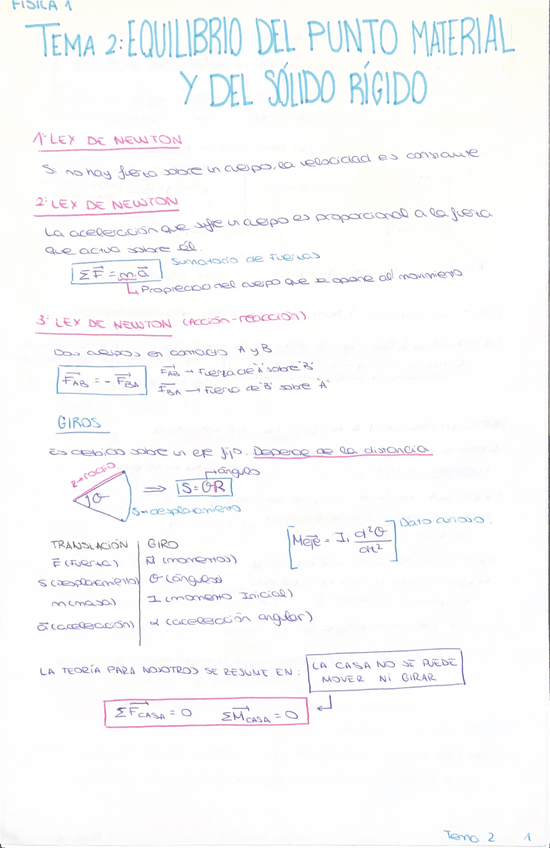 FÍSICA 1
TEMA 2: EQUILIBRIO DEL PUNTO MATERIAL
Y DEL SÓLIDO RÍGIDO
1ª LEY DE NEWTON
Si no hay fuerza sobre un cuerpo, la velocidad es constante
2ª LEY DE NEWTON
La aceleración que sufre un cuerpo es proporcional a la fuerza
que actúa sobre él.
Sumatorio de fuerzas
ΣF⃗ = m·a⃗
Propiedad del cuerpo que se opone al movimiento
3ª LEY DE NEWTON (Acción-reacción)
Dos cuerpos en contacto A y B
F⃗AB = - F⃗BA
F⃗AB → Fuerza de 'A' sobre 'B'
F⃗BA → Fuerza de 'B' sobre 'A'
GIROS
Es debido sobre un eje fijo. Depende de la distancia
R→radio
θ
⇒ S=θR
→ángulo
S→desplazamiento
[Meje = I. d²θ/dt²] Dato curioso.
TRANSLACIÓN | GIRO
F⃗ (fuerza) | M⃗ (momentos)
S (desplazamiento) | θ (ángulos)
m (masa) | I (momento Inicial)
a⃗ (aceleración) | α (aceleración angular)
LA TEORÍA PARA NOSOTROS SE RESUME EN: LA CASA NO SE PUEDE
MOVER NI GIRAR
ΣF⃗CASA = 0 ΣM⃗CASA = 0
Tema 2 1